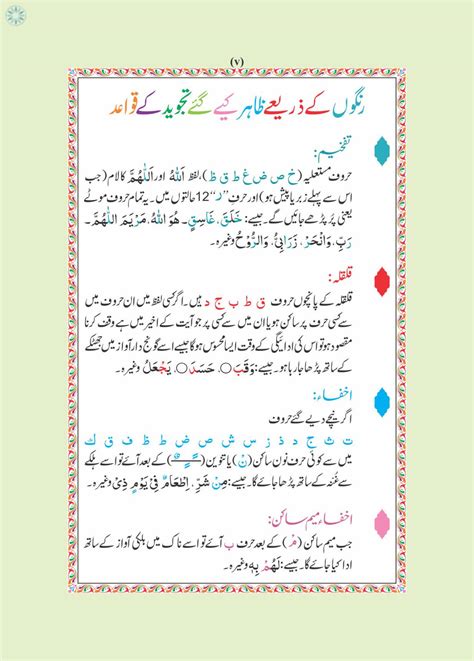 (v)
رنگوں کے ذریعے ظاہر کیے گئے تجوید کے قواعد
تفخیم:
حروف مستعلیہ (خ ص ض غ ط ق ظ)، لفظ اَللهُ اور اَللّٰهُمَّ کا لام (جب
اس سے پہلے زبر یا پیش ہو) اور حرف ’’ر‘‘ 12 حالتوں میں۔ یہ تمام حروف موٹے
یعنی پر پڑھے جائیں گے۔ جیسے: خَلَقَ، غَاسِقٍ۔ هُوَ اللهُ، مَرْيَمَ اللّٰهُمَّ۔
رَبِّ، وَانْحَرْ، زَرَابِيُّ، وَالرُّوْحُ وغیرہ۔
قلقلہ:
قلقلہ کے پانچوں حروف ق ط ب ج د ہیں۔ اگر کسی لفظ میں ان حروف میں
سے کسی حرف پر ساکن ہو یا ان میں سے کسی پر جو آیت کے اخیر میں ہے وقف کرنا
مقصود ہو تو اس کی ادائیگی کے وقت ایسا محسوس ہوگا جیسے اسے گونج دار آواز میں جھٹکے
کے ساتھ پڑھا جا رہا ہو۔ جیسے: وَقَبَ، حَسَدَ۔ يَجْعَلُ وغیرہ۔
اخفاء:
اگر نیچے دیے گئے حروف
ت ث ج د ذ ز س ش ص ض ط ظ ف ق ك
میں سے کوئی حرف نون ساکن (نْ) یا تنوین (ـًـٍـٌ) کے بعد آئے تو اسے ہلکے
سے غنہ کے ساتھ پڑھا جائے گا۔ جیسے: مِنْ شَرِّ۔ اِطْعَامٌ فِيْ يَوْمٍ ذِيْ وغیرہ۔
اخفاء میم ساکن:
جب میم ساکن (مْ) کے بعد حرف ب آئے تو اسے ناک میں ہلکی آواز کے ساتھ
ادا کیا جائے گا۔ جیسے: لَهُمْ بِهٖ وغیرہ۔